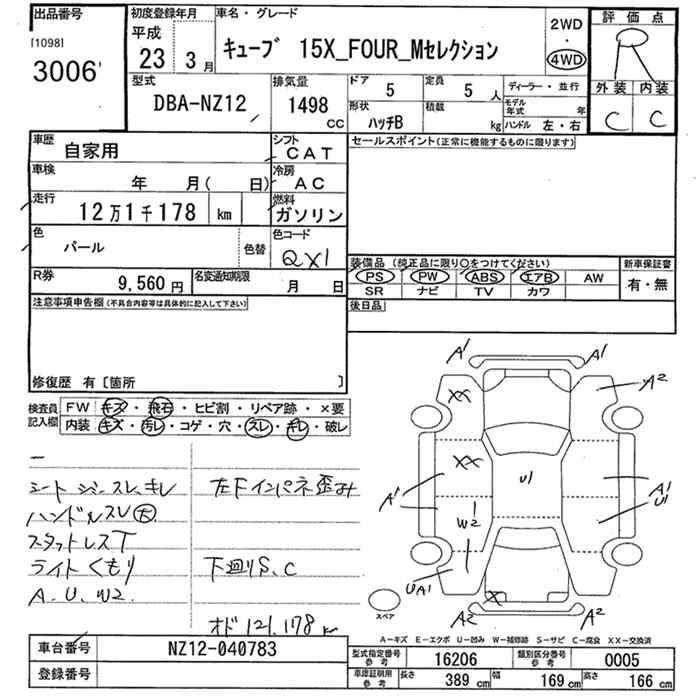 出品番号
[1098]
3006
初度登録年月
平成
23 3月
車名・グレード
キューブ 15X_FOUR_Mセレクション
2WD
・
4WD
評価点
R
外装 内装
C C
型式
DBA-NZ12
排気量
1498
CC
ドア
5
定員
5 人
形状
ハッチB
積載
kg
ディーラー・並行
モデル年式 年
ハンドル 左・右
車歴
自家用
シフト
CAT
車検
年 月( 日)
冷房
AC
走行
12万1千178 km
燃料
ガソリン
色
パール
色替
色コード
QX1
R券
9,560 円
名変通知期限
月 日
セールスポイント(正常に機能するものに限ります)
装備品 (純正品に限り○をつけてください)
PS PW ABS エアB AW
SR ナビ TV カワ
新車保証書
有・無
後日品
注意事項申告欄(不具合内容等は具体的に記入して下さい)
修復歴 有 [箇所 ]
検査員記入欄
FW キズ・飛石・ヒビ割・リペア跡・×要
内装 キズ・汚レ・コゲ・穴・スレ・キレ・破レ
シート シミ、スレ、キレ
ハンドルスレ大
スタットレスT
ライトくもり
A、U、W2
左Fインパネ歪み
下廻りS、C
オド121,178km
A1 A1
A2
XX
XX
A1
U1
A1
U1
W2
UA1
X
A2 A2
スペア
A-キズ E-エクボ U-凹み W-補修跡 S-サビ C-腐食 XX-交換済
車台番号
NZ12-040783
登録番号
型式指定番号
参考
16206
類別区分番号
参考
0005
車庫証明用
参考
長さ
389 cm
幅
169 cm
高さ
166 cm